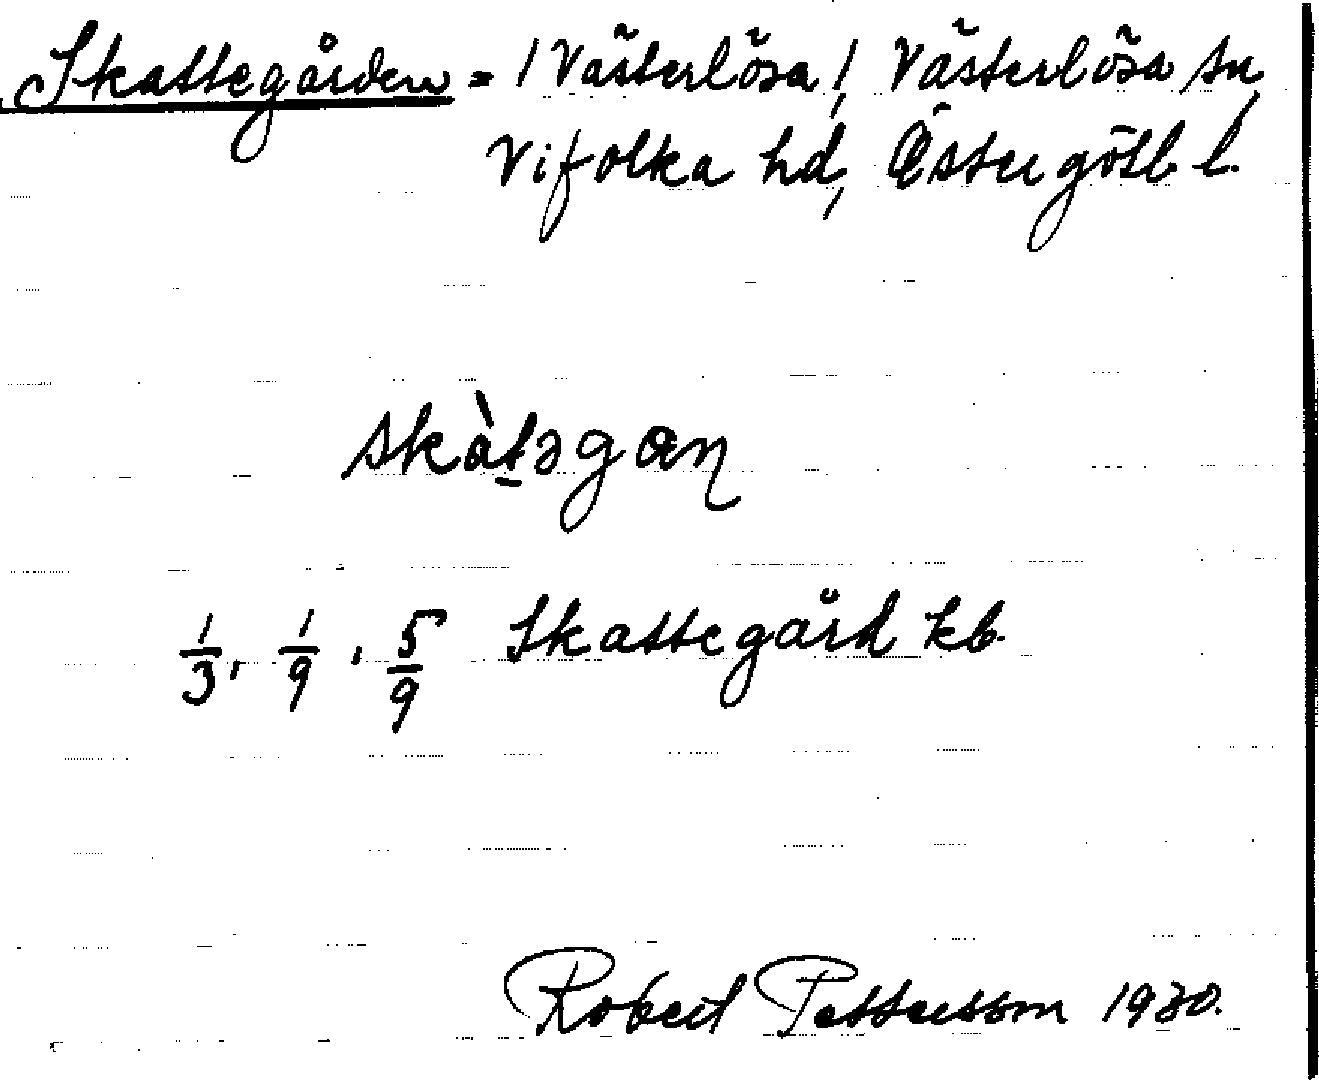 Skattegården = 1 Västerlösa, Västerlösa sn,
Vifolka hd, Östergötl. l.
skàt̠əgɑɳ
1/3, 1/9, 5/9 Skattegård kb.
Robert Pettersson 1930.